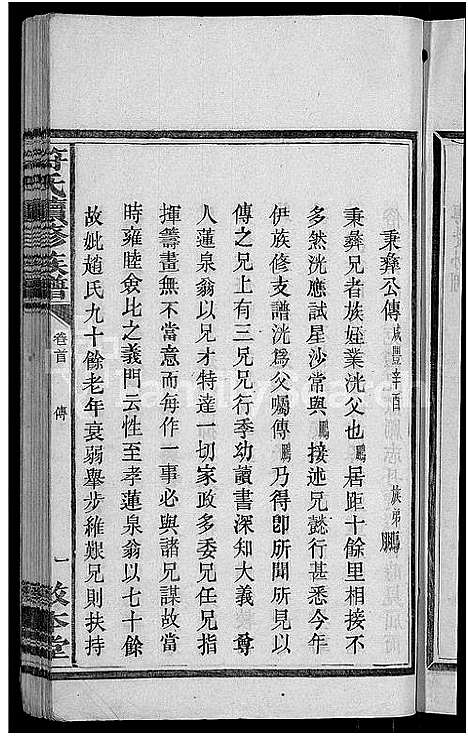 秉彝公傳 咸豐辛酉 族弟鵬
秉彝兄者族姪業洸父也鵬居距十餘里相接不
多然洸應試星沙常與鵬接述兄懿行甚悉今年
伊族修支譜洸為父囑傳鵬乃得即所聞所見以
傳之兄上有三兄兄行季幼讀書深知大義尊
人蓮泉翁以兄才特達一切家政多委兄任兄指
揮籌畫無不當意而每作一事必與諸兄謀故當
時雍睦僉比之義門云性至孝蓮泉翁以七十餘
故妣趙氏九十餘老年衰弱舉步維艱兄則扶持
符氏續修族譜 卷首 傳 一 敦本堂